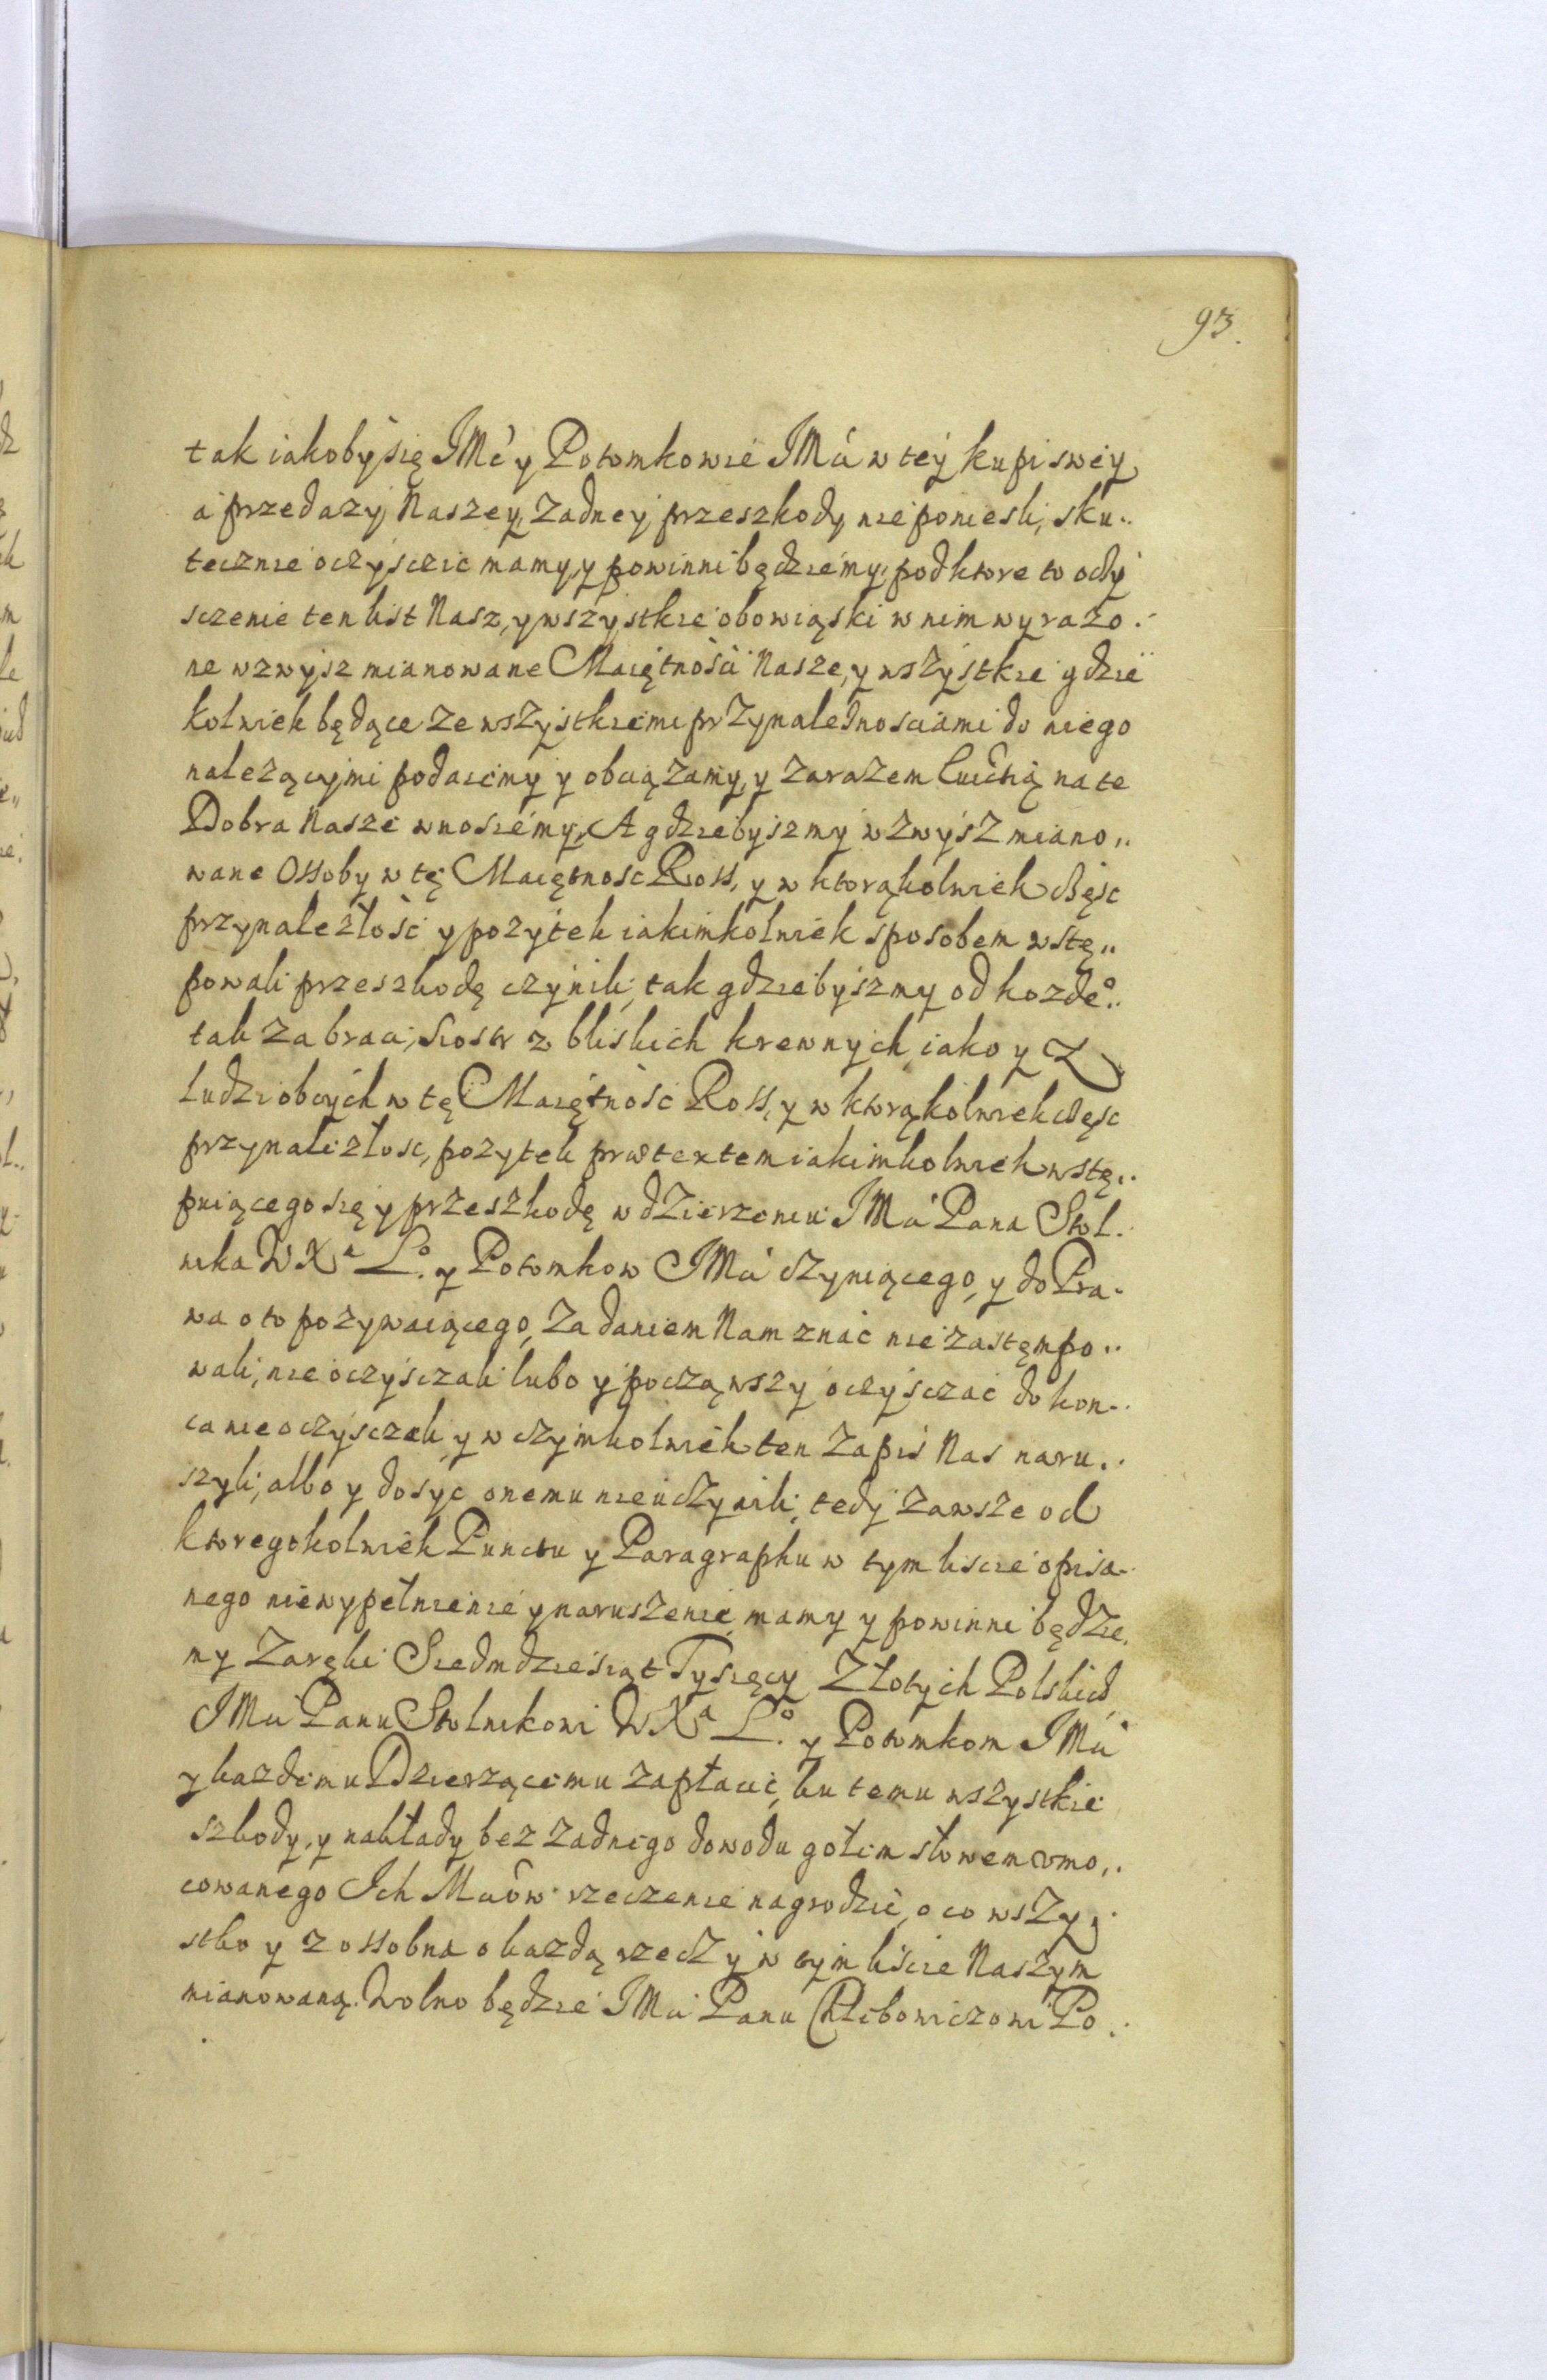 93.
tak iakoby się JMć y Potomkowie JMci w tey kupi swey
a przedazy Naszey, Zadney przeszkody nie poniesli, sku..
tecznie oczysczic mamy, y powinni będziemy, pod ktore to oczy
sczenie ten list Nasz, y wszystkie obowiąski w nim wyrazo.
ne wzwysz mianowane Maiętnosci Nasze, y wszystkie gdzie
kolwiek będące ze wszystkiemi przynaleznosciami do niego
nalezącymi podaiemy y obciązamy, y zarazem Euictią na te
Dobra Nasze wnosiemy. A gdziebyszmy wzwysz miano..
wane Ossoby w tę Maiętnosc Ross, y w ktorąkolwiek część
przynalezłość y pozytek iakimkolwiek sposobem wstę..
powali przeszkodę czynili, tak gdziebyszmy od kozdeº..
tak za braci, siostr z bliskich krewnych iako y z
ludzi obcych w tę Maiętność Ross, y w ktorąkolwiek częsc
przynalezłosc, pozytek prætextem iakimkolwiek wstę..
puiącego się y przeszkodę w dzierzeniu JMci Pana Stol.
nika W Xª Lº. y Potomkow JMci czyniącego, y do Pra.
wa o to pozywaiącego, Za daniem Nam znać nie zastęmpo..
wali, nie oczysczali lubo y począwszy oczysczać do kon..
ca nie oczysczali, y w czymkolwiek ten Zapis Nas naru..
szyli, albo y dosyc onemu nie uczynili, tedy zawsze od
ktoregokolwiek Punctu y Paragraphu w tym liscie opisa..
nego niewypełnienie y naruszenie mamy y powinni będzie.
my Zaręki Siedmdziesiąt Tysięcy Złotych Polskich
JMci Panu Stolnikowi W Xª Lº. y Potomkom JMci
y kazdemu Dzierzącemu zapłacić, ku temu wszystkie
szkody, y nakłady bez zadnego dowodu gołem słowem vmo..
cowanego Ich Mciow rzeczenie nagrodzić, o co wszy.
stko y z ossobna o kazdą rzecz y w tym liscie Naszym
mianowaną. Wolno będzie JMci Panu Chlebowiczowi Po..